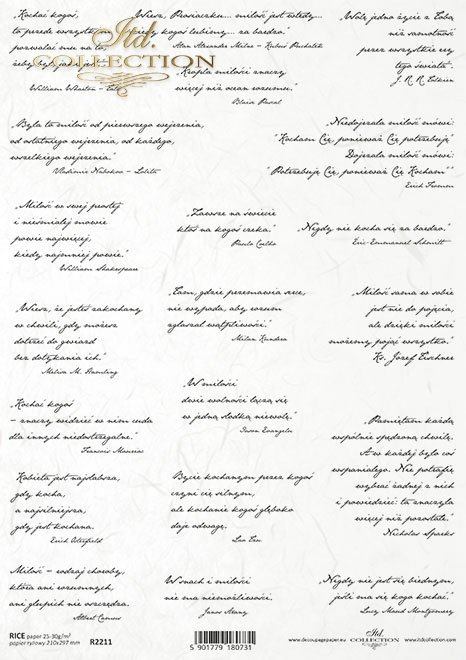 Kochać kogoś,
to przede wszystkim
pozwalać mu na to,
żeby był, jaki jest.
William Wharton -
"Wiesz, Prosiaczku... miłość jest wtedy...
kiedy kogoś lubimy... za bardzo."
Alan Alexander Milne - Kubuś Puchatek
„Kropla miłości znaczy
więcej niż ocean rozumu."
Blaise Pascal
"Wolę jedno życie z Tobą
niż samotność
przez wszystkie ery
tego świata."
J. R. R. Tolkien
Itd.
COLLECTION
„Była to miłość od pierwszego wejrzenia,
od ostatniego wejrzenia, od każdego,
wszelkiego wejrzenia."
Vladimir Nabokov - Lolita
Niedojrzała miłość mówi:
"Kocham Cię, ponieważ Cię potrzebuję"
Dojrzała miłość mówi:
"Potrzebuję Cię, ponieważ Cię Kocham"
Erich Fromm
„Miłość w swej prostej
i nieśmiałej mowie
powie najwięcej,
kiedy najmniej powie."
William Shakespeare
"Zawsze na świecie
ktoś na kogoś czeka."
Paulo Coelho
„Nigdy nie kocha się za bardzo."
Eric-Emmanuel Schmitt
Wiesz, że jesteś zakochany
w chwili, gdy możesz
dotrzeć do gwiazd
bez dotykania ich."
Melisa M.
„Tam, gdzie przemawia serce,
nie wypada, aby rozum
zgłaszał wątpliwości."
Milan Kundera
„Miłość sama w sobie
jest nie do pojęcia,
ale dzięki miłości
możemy pojąć wszystko."
Ks. Józef Tischner
„Kochać kogoś
- znaczy widzieć w nim cuda
dla innych niedostrzegalne."
Francois Mauriac
„W miłości
dwie wolności łączą się
w jedną słodką niewolę."
Jason Evangelu
„Pamiętam każdą
wspólnie spędzoną chwilę.
A w każdej było coś
wspaniałego. Nie potrafię
wybrać żadnej z nich
i powiedzieć: ta znaczyła
więcej niż pozostałe."
Nicholas Sparks
Kobieta jest najsłabsza,
gdy kocha,
a najsilniejsza,
gdy jest kochana.
Erich Osterfield
Bycie kochanym przez kogoś
czyni cię silnym,
ale kochanie kogoś głęboko
daje odwagę.
Lao Tzu
Miłość - rodzaj choroby,
która ani rozumnych,
ani głupich nie oszczędza.
Albert Camus
W snach i miłości
nie ma niemożliwości.
Janos Arany
„Nigdy nie jest się biednym,
jeśli ma się kogo kochać."
Lucy Maud Montgomery
RICE paper 25-30g/m²
papier ryżowy 210x297 mm
R2211
5 901779 180731
www.decoupagepaper.eu
Itd.
COLLECTION
www.itdcollection.com